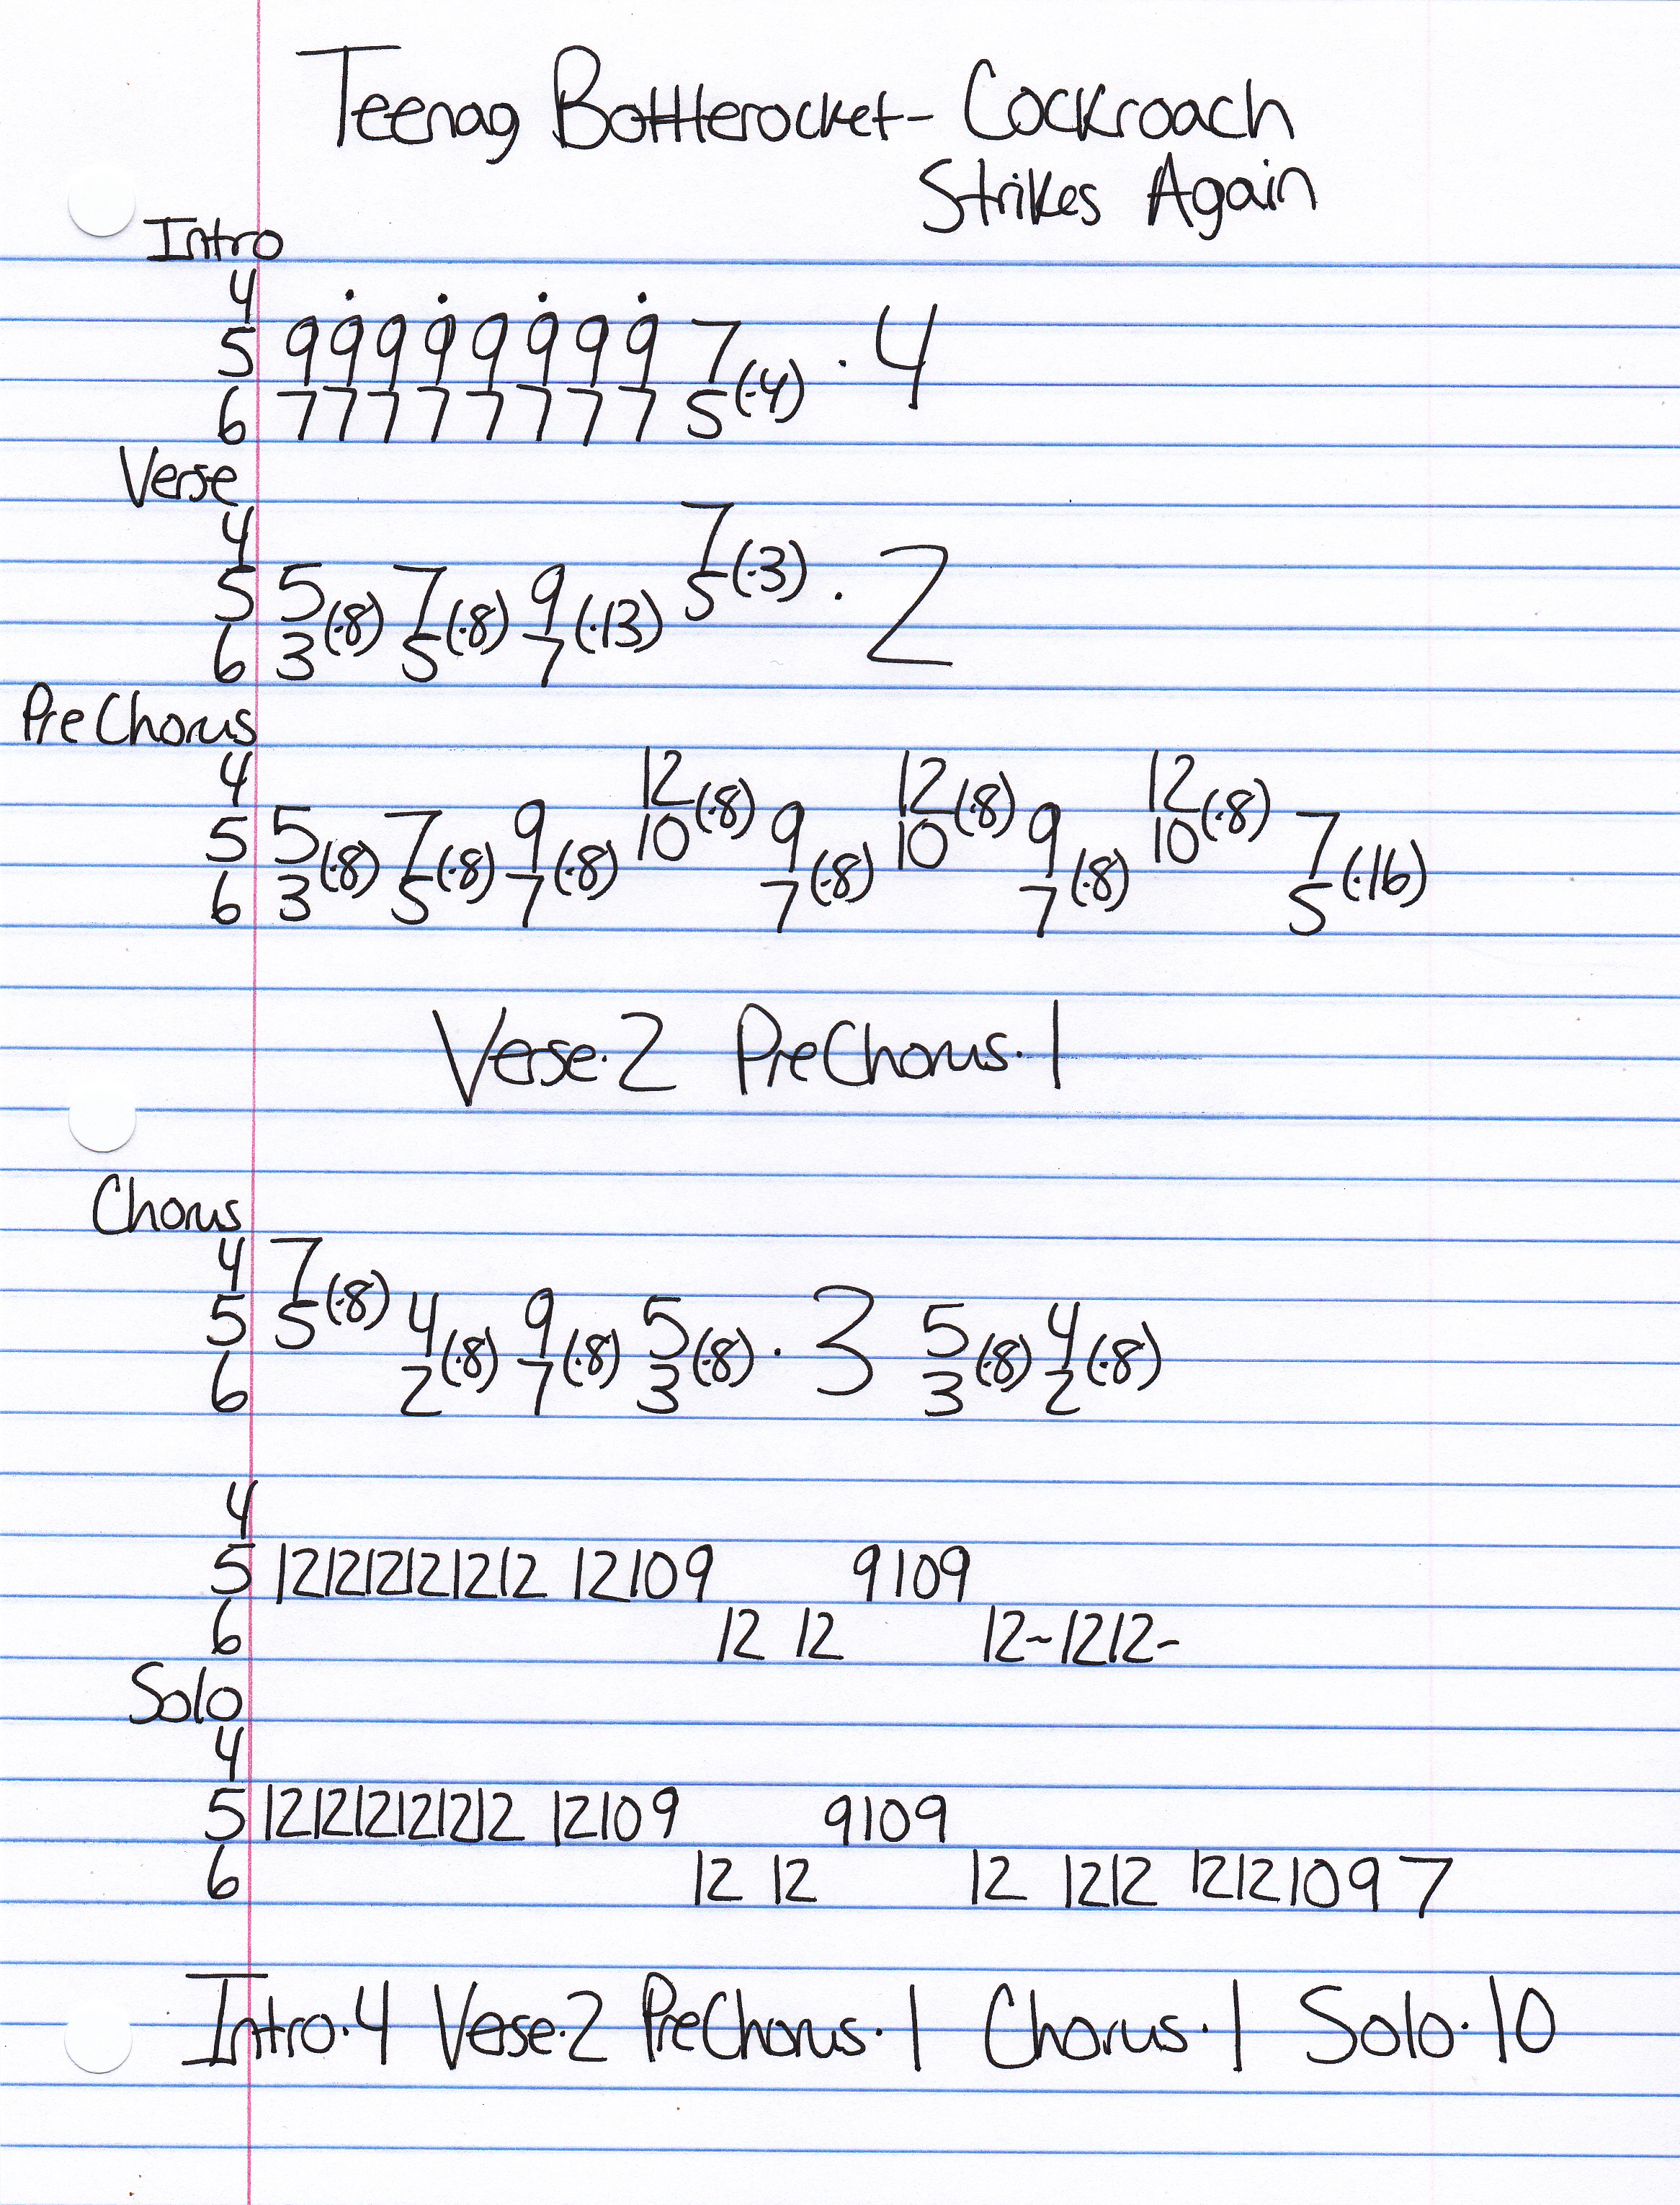 Teenag Bottlerocket- Cockroach
Strikes Again
Intro
4
5 9 9 9 9 9 9 9 9 7
6 7 7 7 7 7 7 7 7 5 (·4) · 4
Verse
4 7
5 5 7 9 5 (·3) · 2
6 3 (·8) 5 (·8) 7 (·13)
PreChorus
4 12 (·8) 12 (·8) 12 (·8)
5 5 7 9 10 9 10 9 10 7
6 3 (·8) 5 (·8) 7 (·8) 7 (·8) 7 (·8) 5 (·16)
Verse·2 PreChorus·1
Chorus
4 7
5 5 (·8) 4 9 5 · 3 5 4
6 2 (·8) 7 (·8) 3 (·8) 3 (·8) 2 (·8)
4
5 12 12 12 12 12 12 12 10 9 9 10 9
6 12 12 12~ 12 12~
Solo
4
5 12 12 12 12 12 12 12 10 9 9 10 9
6 12 12 12 12 12 12 12 10 9 7
Intro·4 Verse·2 PreChorus·1 Chorus·1 Solo·10